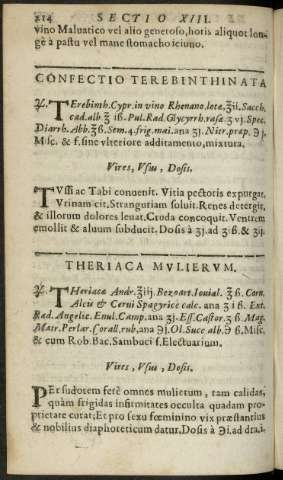 214 SECTIO XIII.
vino Maluatico vel alio generoso, horis aliquot lon-
gè à pastu vel mane stomacho ieiuno.
CONFECTIO TEREBINTHINATA
℞. TErebinth. Cypr. in vino Rhenano lotæ, ℥ii. Sacch.
cad. alb. ℥ iß. Pul. Rad. Glycyrrh. rasæ ʒ vj. Spec.
Diarrh. Abb. ℥ß. Sem. 4. frig. mai. ana ʒj. Nitr. præp. ℈ j.
Misc. & f. sine vlteriore additamento, mixtura.
Vires, Vsus, Dosis.
TVssi ac Tabi conuenit. Vitia pectoris expurgat.
Vrinam cit. Stranguriam soluit. Renes detergit,
& illorum dolores leuat. Cruda concoquit. Ventrem
emollit & aluum subducit. Dosis à ʒj. ad ʒ.ß. & ʒij.
THERIACA MVLIERVM.
℞. THeriacæ Andr. ℥iij. Bezoart. Iouial. ℥ ß. Corn.
Alcis & Cerui Spagyricè calc. ana ʒ iß. Ext.
Rad. Angelic. Enul. Camp. ana ʒj. Ess. Castor ʒ ß. Mag.
Matr. Perlar. Corall. rub. ana ℈j. Ol. Succ. alb. ℈ ß. Misc.
& cum Rob. Bac. Sambuci f. Electuarium.
Vires, Vsus, Dosis.
PEr sudorem ferè omnes mulierum, tam calidas,
quàm frigidas infirmitates occulta quadam pro-
prietate curat; Et pro sexu fœminino vix præstantius
& nobilius diaphoreticum datur. Dosis à ℈i. ad dra. i.